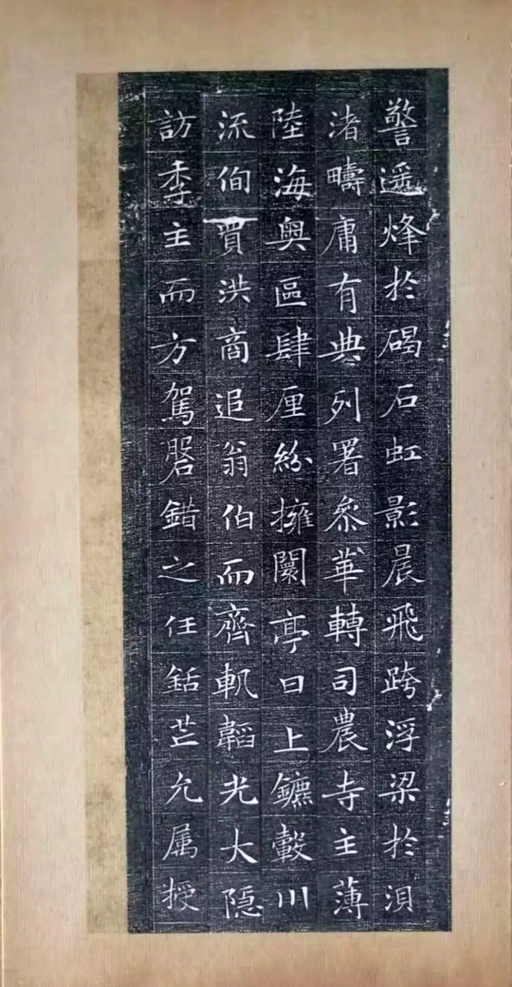 警遥烽於碣石虹影晨飛跨浮梁於浿
渚疇庸有典列署叅華轉司農寺主薄
陸海奥區肆厘紛擁闤亭日上鑣轂川
流佝買洪商追翁伯而齊軌韜光大隱
訪季主而方駕膋錯之任銛芒允属授